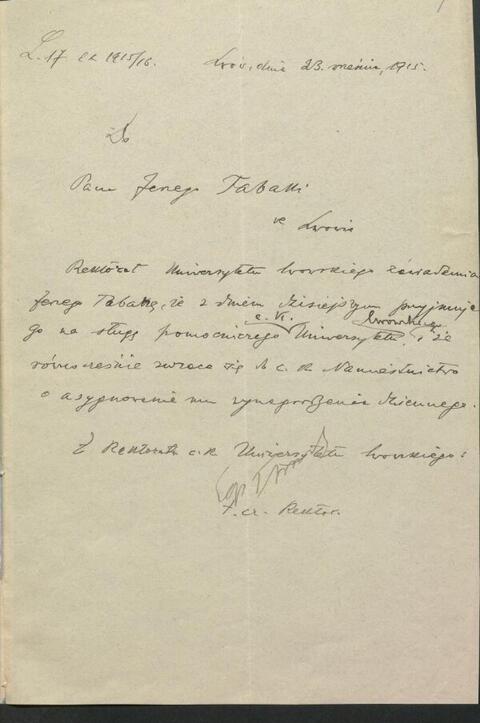 L. 17 ex 1915/16. Lwów, dnia 23. września, 1915.
Do
Pana Jerzego Tabaki
we Lwowie
Rektorat Uniwersytetu lwowskiego zawiadamia
Jerzego Tabakę, że z dniem dzisiejszym przyjmuje
go na sługę pomocniczego c. k. Uniwersytetu lwowskiego i że
równocześnie zwraca się do c. k. Namiestnictwa
o asygnowanie mu wynagrodzenia dziennego.
Z Rektoratu c. k. Uniwersytetu lwowskiego:
Rektor.